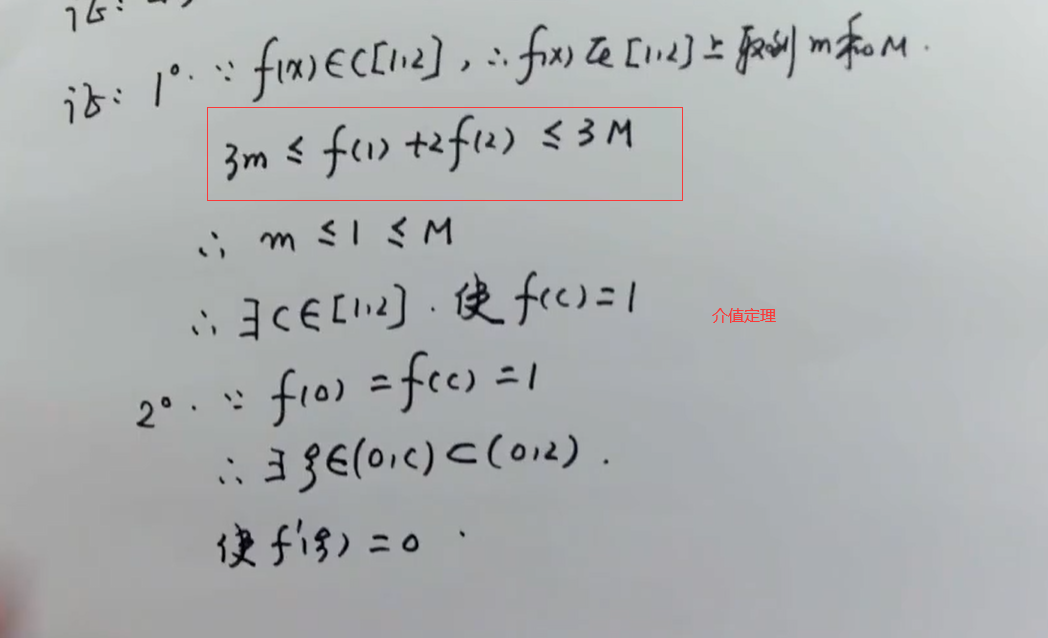 证:
证: 1°. ∵ f(x)∈C[1,2], ∴ f(x) 在 [1,2] 上取到 m 和 M.
3m ≤ f(1) +2f(2) ≤ 3M
∴ m ≤ 1 ≤ M
∴ ∃ C∈[1,2]. 使 f(c) = 1
介值定理
2°. ∵ f(0) = f(c) = 1
∴ ∃ ξ∈(0,c) ⊂ (0,2).
使 f'(ξ) = 0.